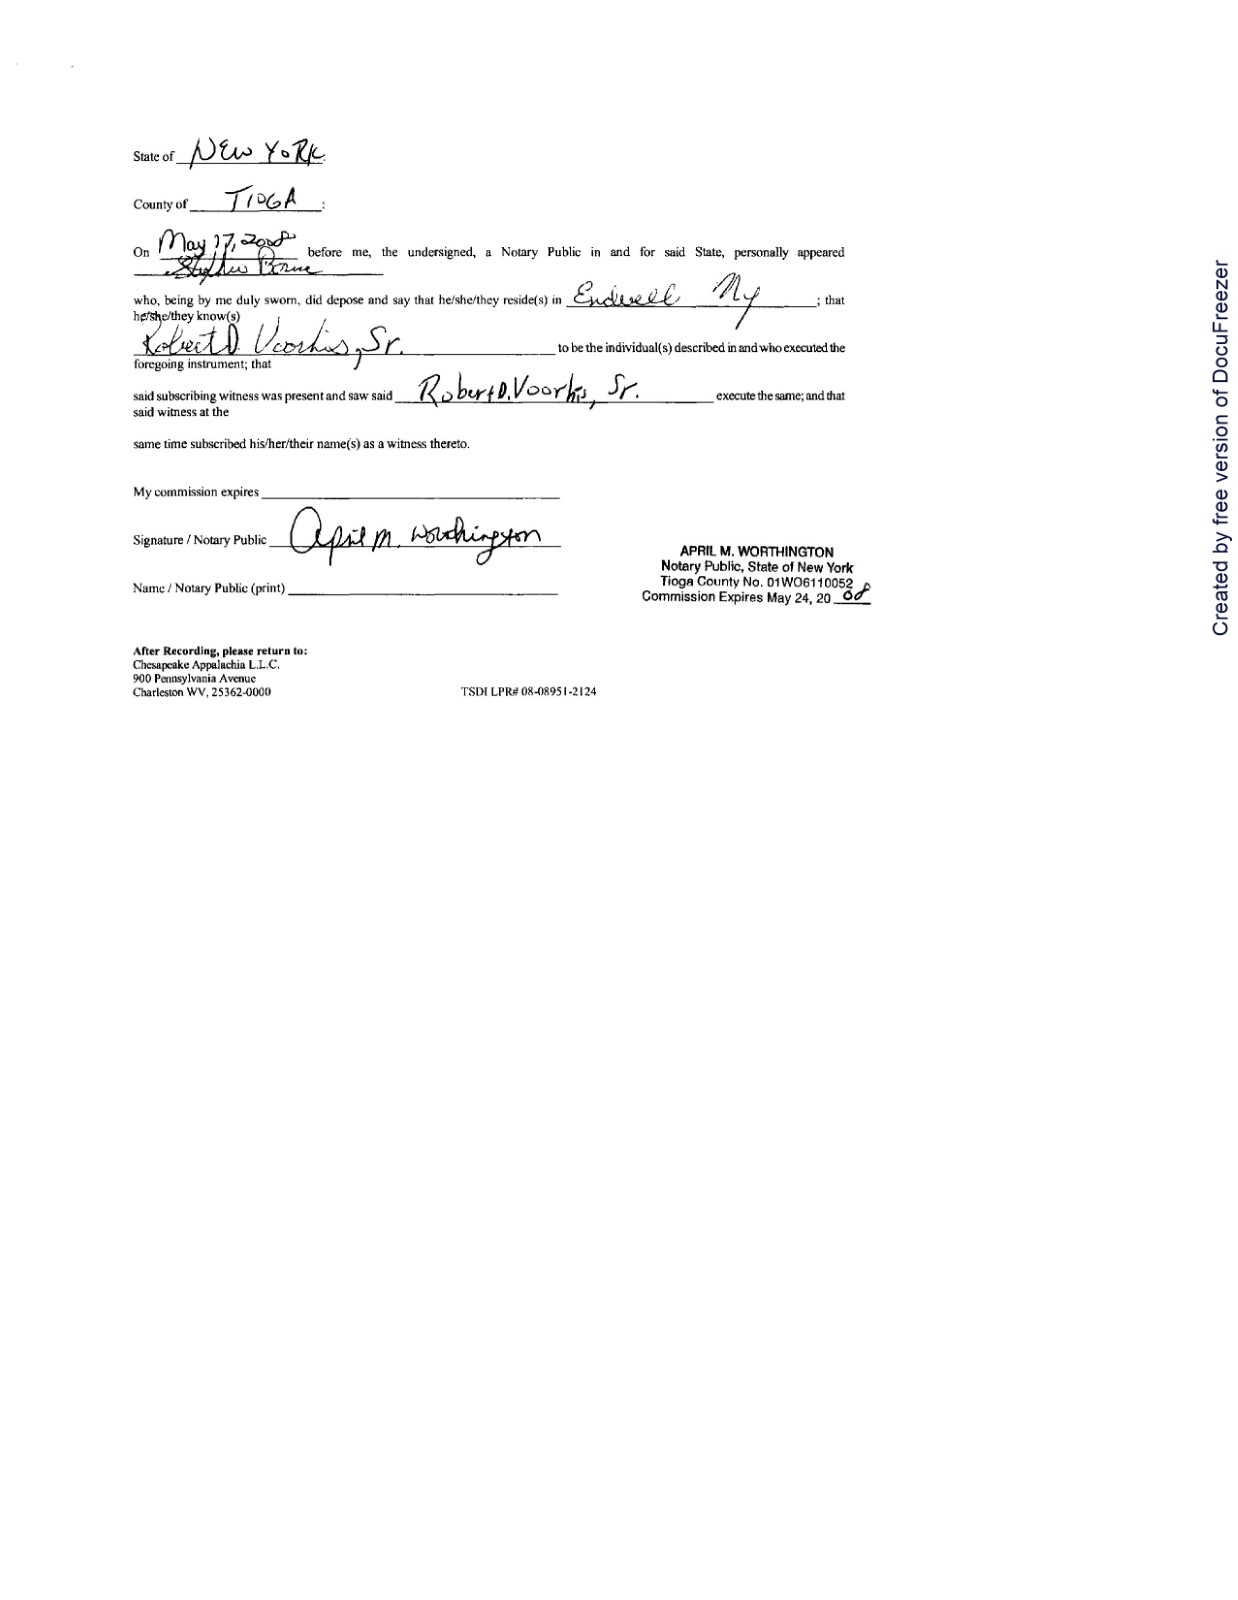 State of NEW YORK:
County of TIOGA :
On May 17, 2008 before me, the undersigned, a Notary Public in and for said State, personally appeared
Stephen
who, being by me duly sworn, did depose and say that he/she/they reside(s) in Endwell NY ; that
he/she/they know(s)
Robert D. Voorhis, Sr. to be the individual(s) described in and who executed the
foregoing instrument; that
said subscribing witness was present and saw said Robert D. Voorhis, Sr. execute the same; and that
said witness at the
same time subscribed his/her/their name(s) as a witness thereto.
My commission expires
Signature / Notary Public April M. Worthington
Name / Notary Public (print)
APRIL M. WORTHINGTON
Notary Public, State of New York
Tioga County No. 01WO6110052
Commission Expires May 24, 20 08
After Recording, please return to:
Chesapeake Appalachia L.L.C.
900 Pennsylvania Avenue
Charleston WV, 25362-0000
TSDI LPR# 08-08951-2124
Created by free version of DocuFreezer